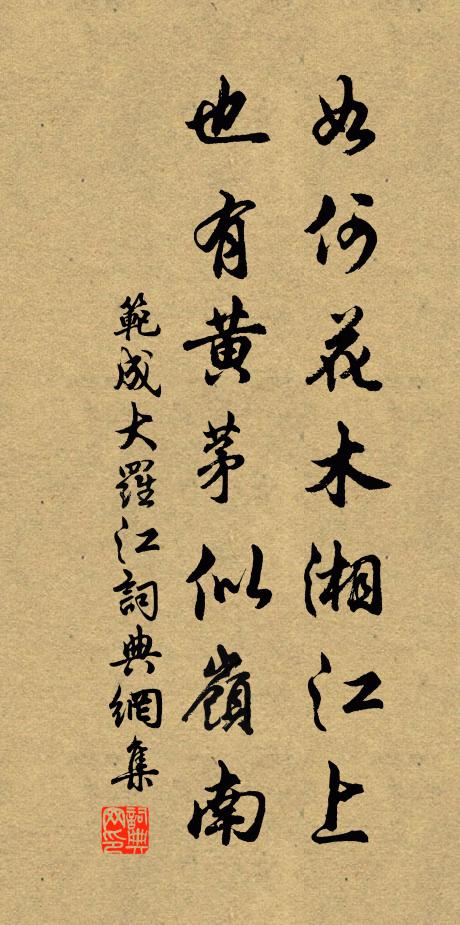 如何花木湘江上
也有黃茅似嶺南
範成大羅江詞典網集
詞典網印